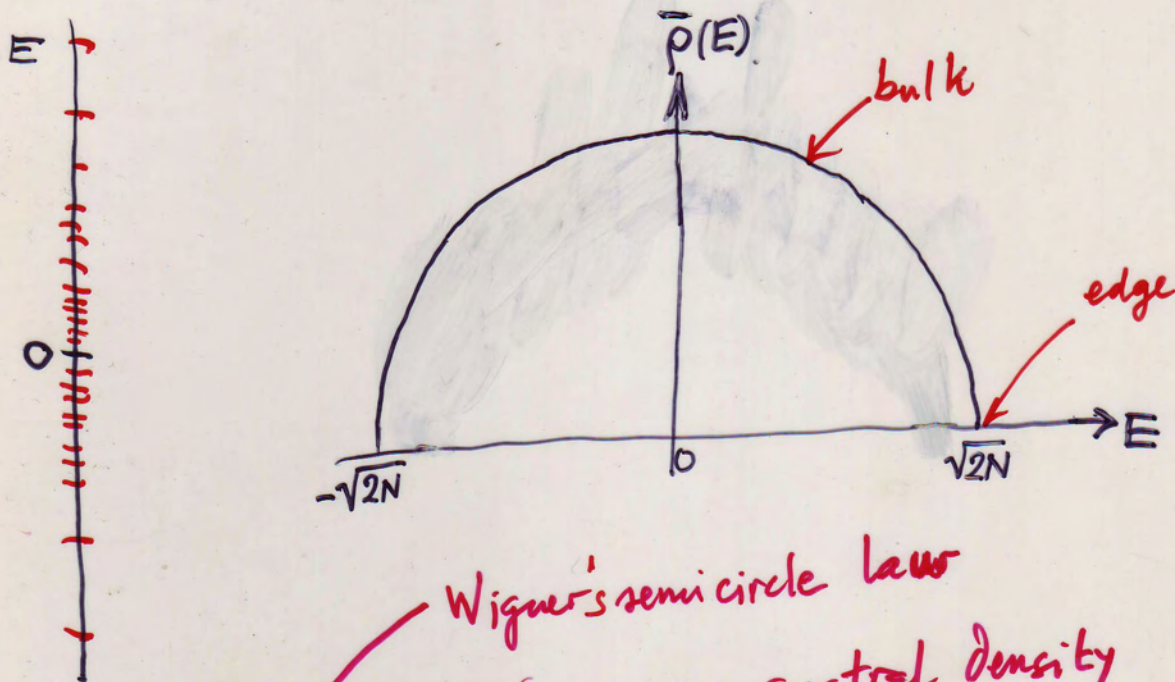 E
0
ρ̄(E)
bulk
edge
E
-√2N
0
√2N
Wigner's semicircle law
spectral density